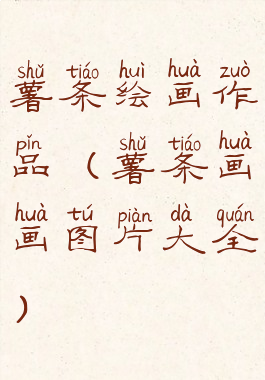 shǔ tiáo huì huà zuò
薯条绘画作
pǐn shǔ tiáo huà
品（薯条画
huà tú piàn dà quán
画图片大全
）